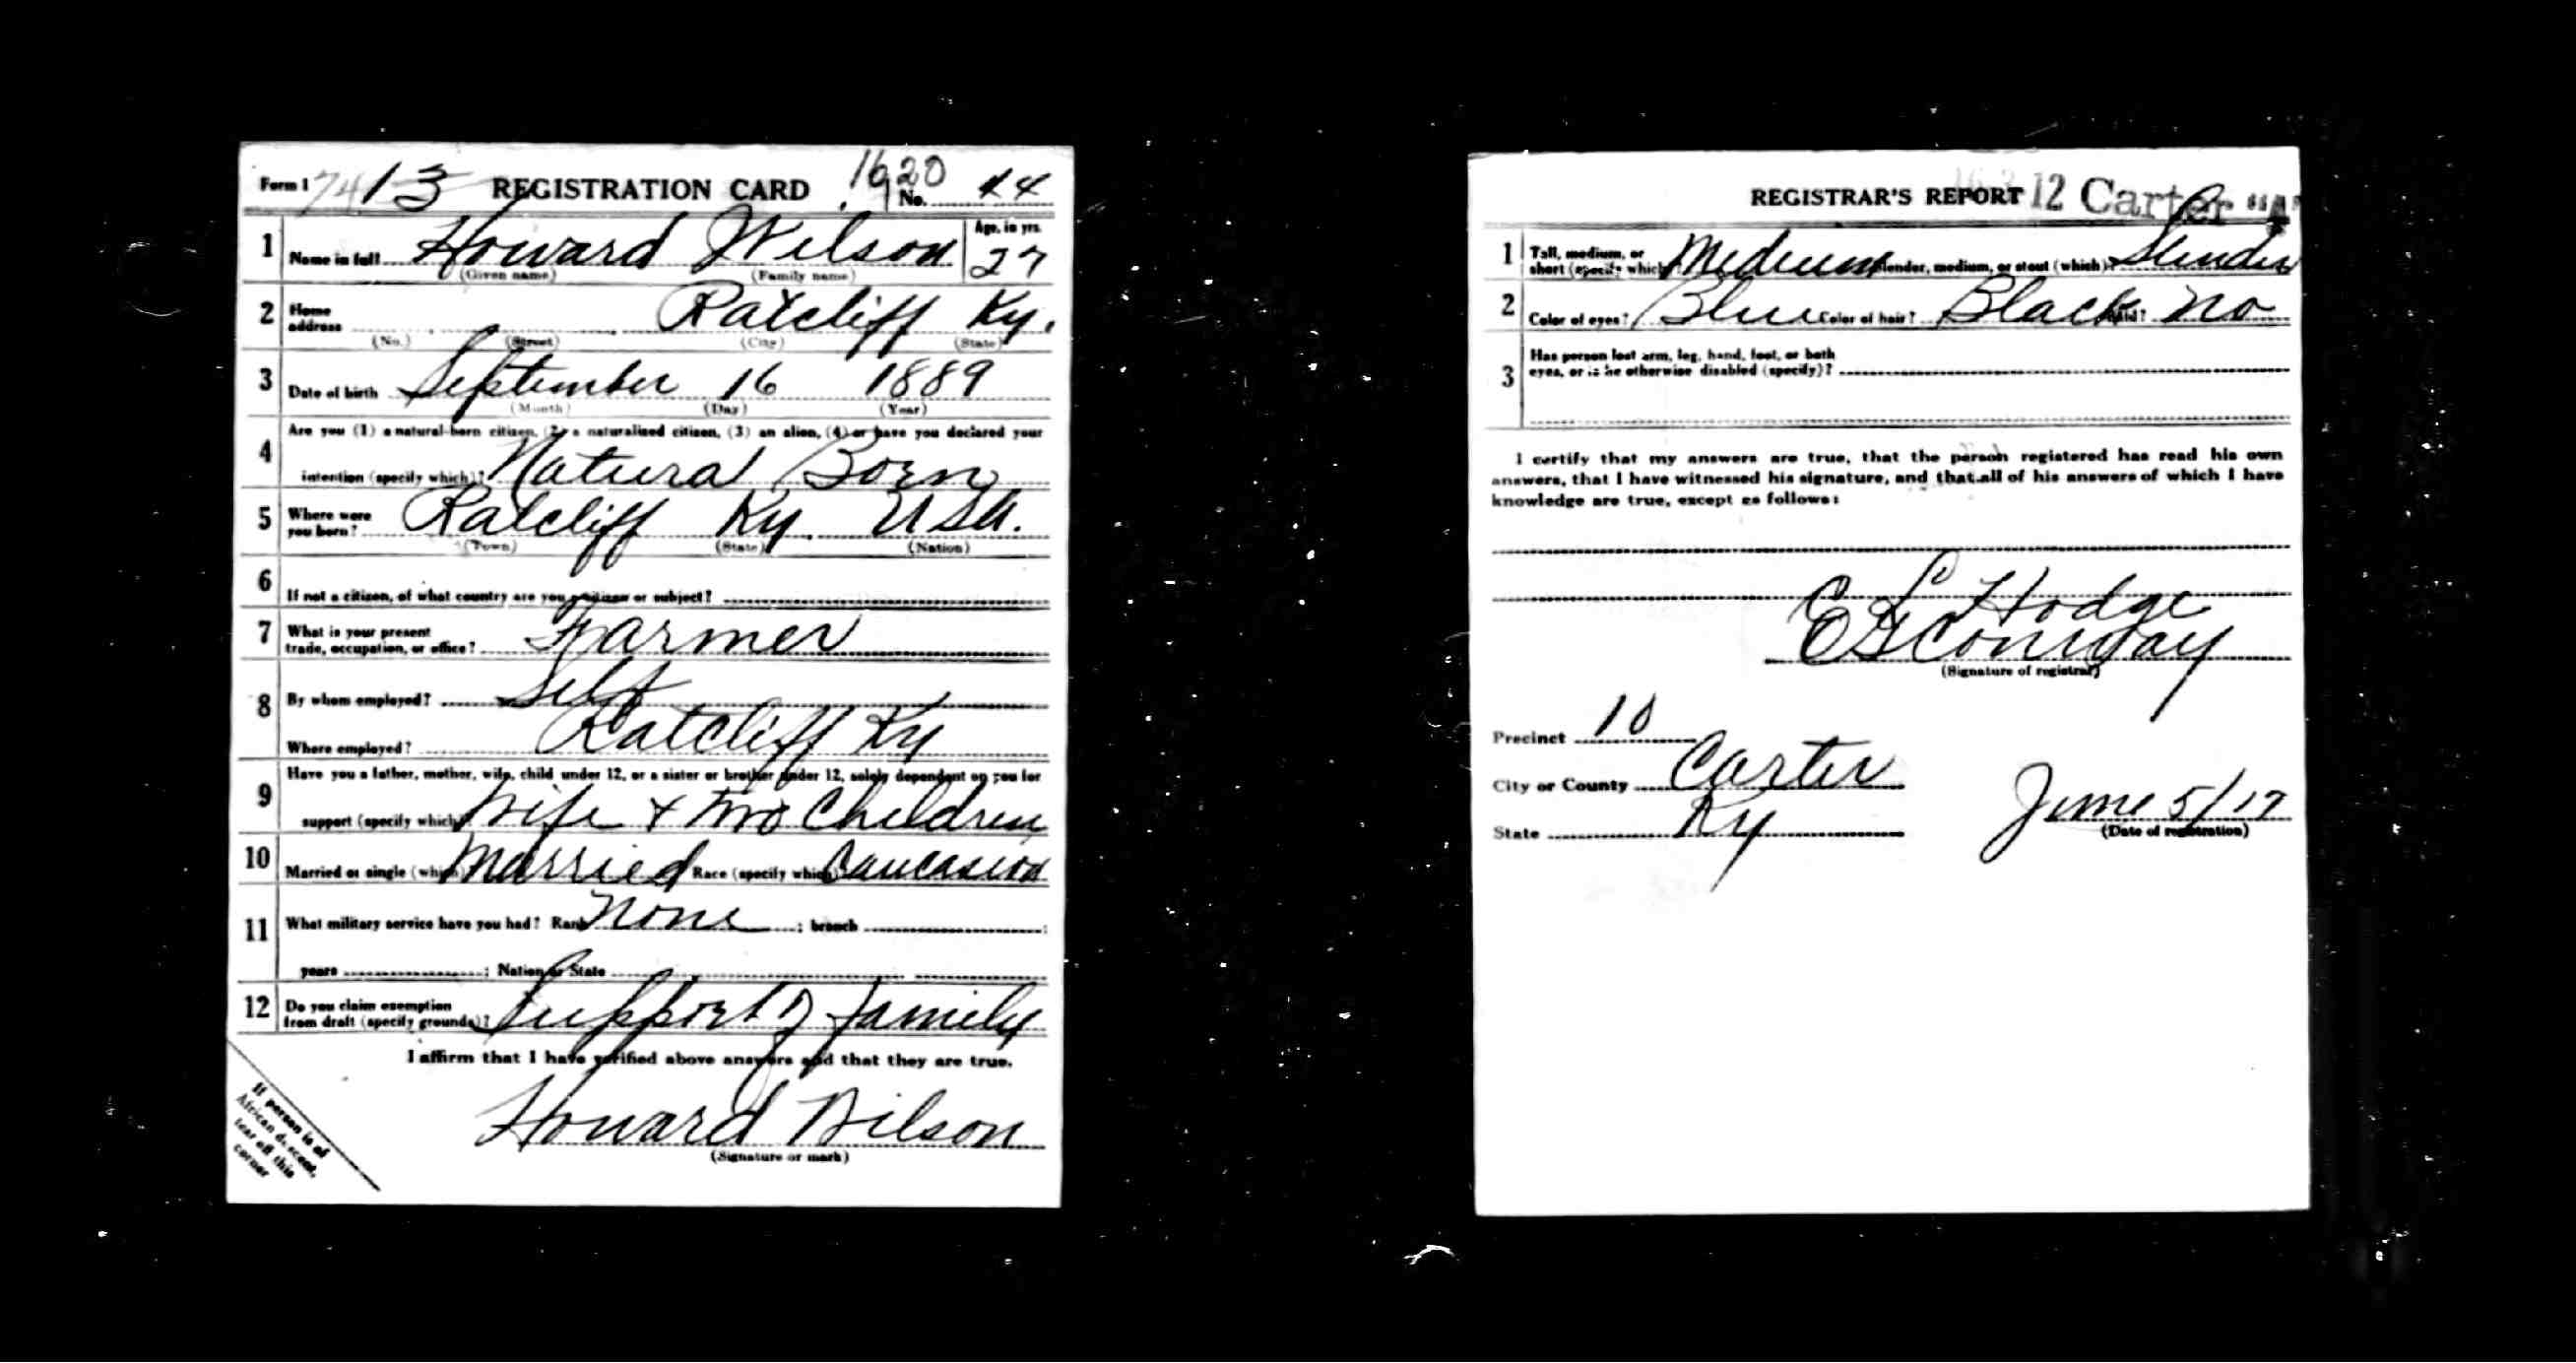 Form 1 7413 REGISTRATION CARD 1620 No. 44
1 Name in full Howard Wilson Age, in yrs. 27
(Given name) (Family name)
2 Home address Ratcliff Ky.
(No.) (Street) (City) (State)
3 Date of birth September 16 1889
(Month) (Day) (Year)
4 Are you (1) a natural-born citizen, (2) a naturalized citizen, (3) an alien, (4) or have you declared your
intention (specify which)? Natural Born
5 Where were you born? Ratcliff Ky. USA.
(Town) (State) (Nation)
6 If not a citizen, of what country are you a citizen or subject?
7 What is your present trade, occupation, or office? Farmer
8 By whom employed? Self
Where employed? Ratcliff Ky
9 Have you a father, mother, wife, child under 12, or a sister or brother under 12, solely dependent on you for
support (specify which)? Wife & two Children
10 Married or single (which)? Married Race (specify which)? Caucasian
11 What military service have you had? Rank None ; branch ;
years ; Nation or State
12 Do you claim exemption from draft (specify grounds)? Support of family
I affirm that I have verified above answers and that they are true.
Howard Wilson
(Signature or mark)
If person is of
African descent,
tear off this
corner
REGISTRAR'S REPORT 12 Carter "A"
1 Tall, medium, or short (specify which)? Medium Slender, medium, or stout (which)? Slender
2 Color of eyes? Blue Color of hair? Black Bald? No
3 Has person lost arm, leg, hand, foot, or both
eyes, or is he otherwise disabled (specify)?
I certify that my answers are true, that the person registered has read his own
answers, that I have witnessed his signature, and that all of his answers of which I have
knowledge are true, except as follows:
Hodge
(Signature of registrar)
Precinct 10
City or County Carter
State Ky
June 5/17
(Date of registration)